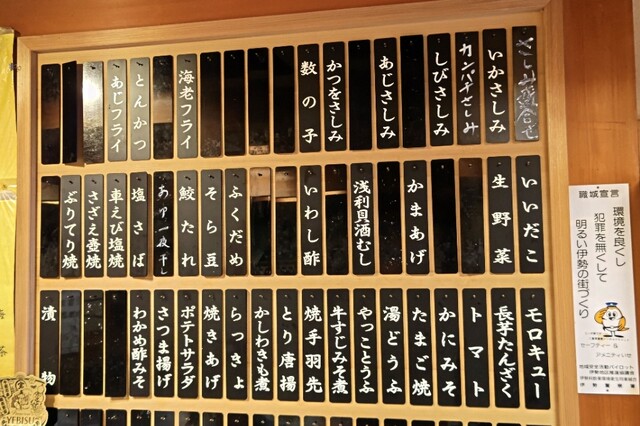 さしみ盛合せ
いかさしみ
カンパチざしみ
しびさしみ
あじさしみ
かつをさしみ
数の子
海老フライ
とんかつ
あじフライ
いいだこ
生野菜
かまあげ
浅利貝酒むし
いわし酢
ふくだめ
そら豆
鮫たれ
塩さば
車えび塩焼
さざえ壺焼
ぶりてり焼
モロキュー
長芋たんざく
トマト
かにみそ
たまご焼
湯どうふ
やっことうふ
牛すじみそ煮
焼手羽先
とり唐揚
かしわきも煮
らっきょ
焼きあげ
ポテトサラダ
さつま揚げ
わかめ酢みそ
漬物
職域宣言
環境を良くし
犯罪を無くして
明るい伊勢の街づくり
セーフティー &
アメニティいせ
YEBISU